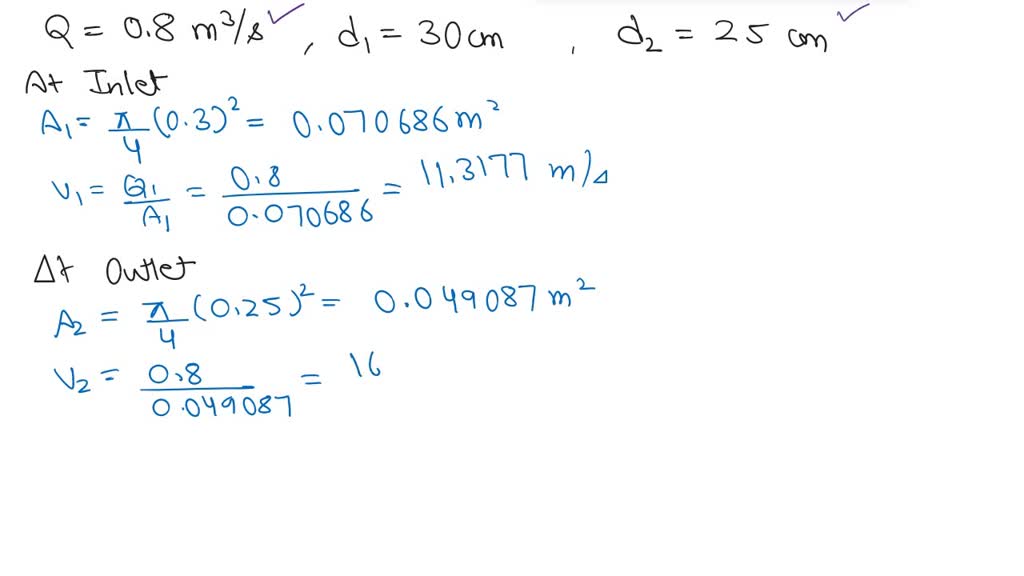 Q = 0.8 m³/s , d₁ = 30 cm , d₂ = 25 cm
At Inlet
A₁ = π/4 (0.3)² = 0.070686 m²
V₁ = Q₁/A₁ = 0.8/0.070686 = 11.3177 m/s
At Outlet
A₂ = π/4 (0.25)² = 0.049087 m²
V₂ = 0.8/0.049087 = 16